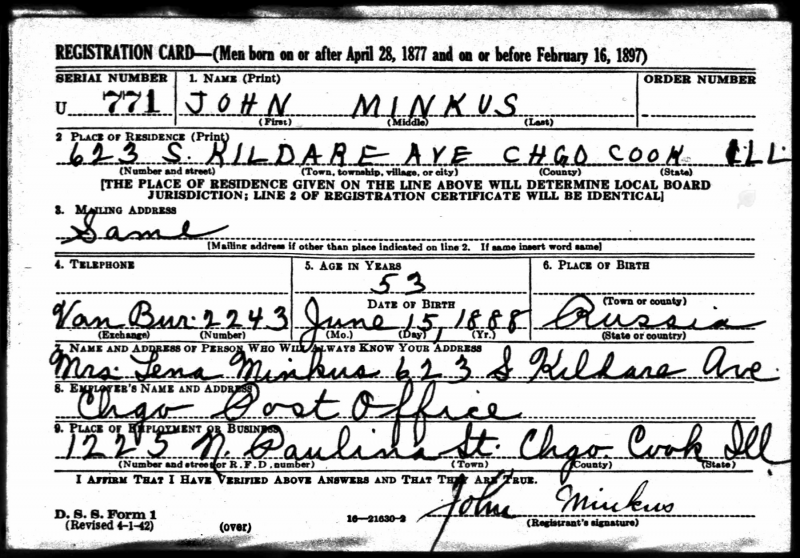 REGISTRATION CARD—(Men born on or after April 28, 1877 and on or before February 16, 1897)
SERIAL NUMBER 1. NAME (Print) ORDER NUMBER
U 771 JOHN MINKUS
(First) (Middle) (Last)
2 PLACE OF RESIDENCE (Print)
623 S. KILDARE AVE CHGO COOK ILL
(Number and street) (Town, township, village, or city) (County) (State)
[THE PLACE OF RESIDENCE GIVEN ON THE LINE ABOVE WILL DETERMINE LOCAL BOARD
JURISDICTION; LINE 2 OF REGISTRATION CERTIFICATE WILL BE IDENTICAL]
3. MAILING ADDRESS
Same
[Mailing address if other than place indicated on line 2. If same insert word same]
4. TELEPHONE 5. AGE IN YEARS 6. PLACE OF BIRTH
53
DATE OF BIRTH (Town or county)
Van Bur. 2243 June 15, 1888 Russia
(Exchange) (Number) (Mo.) (Day) (Yr.) (State or country)
7. NAME AND ADDRESS OF PERSON WHO WILL ALWAYS KNOW YOUR ADDRESS
Mrs. Lena Minkus 623 S Kildare Ave.
8. EMPLOYER'S NAME AND ADDRESS
Chgo Post Office
9. PLACE OF EMPLOYMENT OR BUSINESS
1225 N. Paulina St. Chgo. Cook Ill
(Number and street or R. F. D. number) (Town) (County) (State)
I AFFIRM THAT I HAVE VERIFIED ABOVE ANSWERS AND THAT THEY ARE TRUE.
John Minkus
D. S. S. Form 1
(Revised 4-1-42) (over) 16—21630-2 (Registrant's signature)